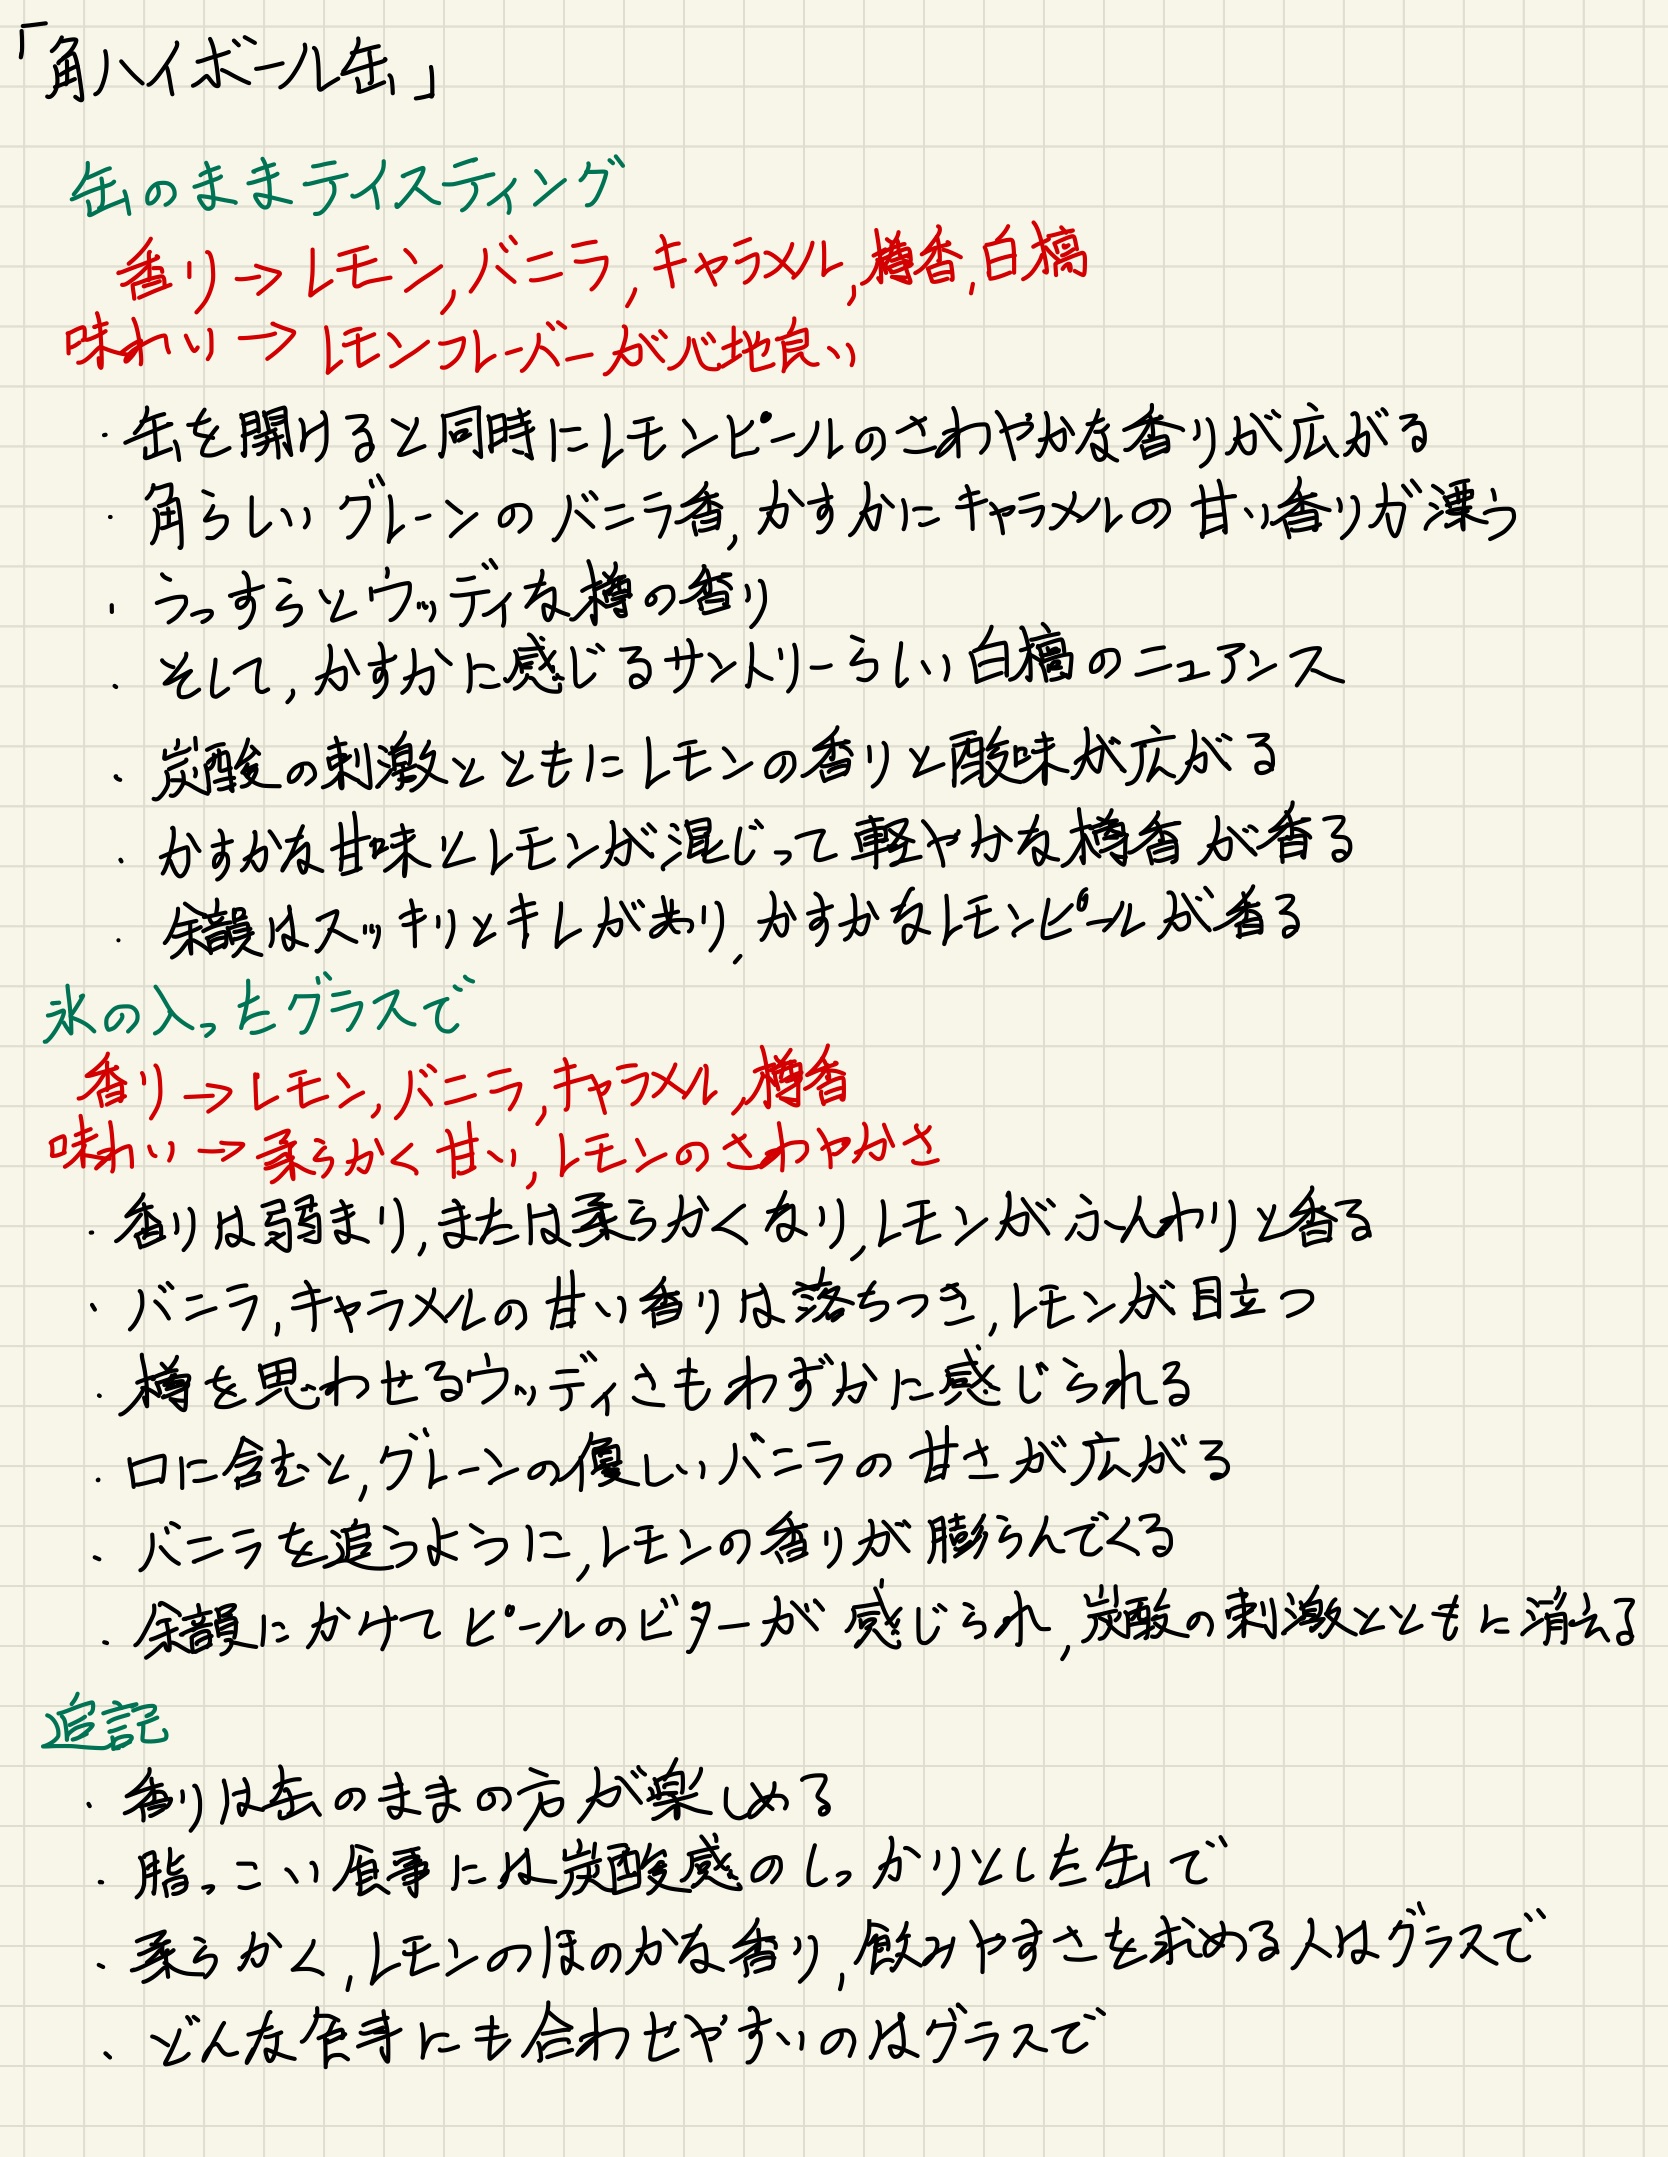 「角ハイボール缶」
缶のままテイスティング
香り→レモン,バニラ,キャラメル,樽香,白檀
味わい→レモンフレーバーが心地良い
・缶を開けると同時にレモンピールのさわやかな香りが広がる
・角らしいグレーンのバニラ香,かすかにキャラメルの甘い香りが漂う
・うっすらとウッディな樽の香り
・そして,かすかに感じるサントリーらしい白檀のニュアンス
・炭酸の刺激とともにレモンの香りと酸味が広がる
・かすかな甘味とレモンが混じって軽やかな樽香が香る
・余韻はスッキリとキレがあり,かすかなレモンピールが香る
氷の入ったグラスで
香り→レモン,バニラ,キャラメル,樽香
味わい→柔らかく甘い,レモンのさわやかさ
・香りは弱まり,または柔らかくなり,レモンがふんわりと香る
・バニラ,キャラメルの甘い香りは落ちつき,レモンが目立つ
・樽を思わせるウッディさもわずかに感じられる
・口に含むと,グレーンの優しいバニラの甘さが広がる
・バニラを追うように,レモンの香りが膨らんでくる
・余韻にかけてピールのビターが感じられ,炭酸の刺激とともに消える
追記
・香りは缶のままの方が楽しめる
・脂っこい食事には炭酸感のしっかりとした缶で
・柔らかく,レモンのほのかな香り,飲みやすさを求める人はグラスで
・どんな食事にも合わせやすいのはグラスで